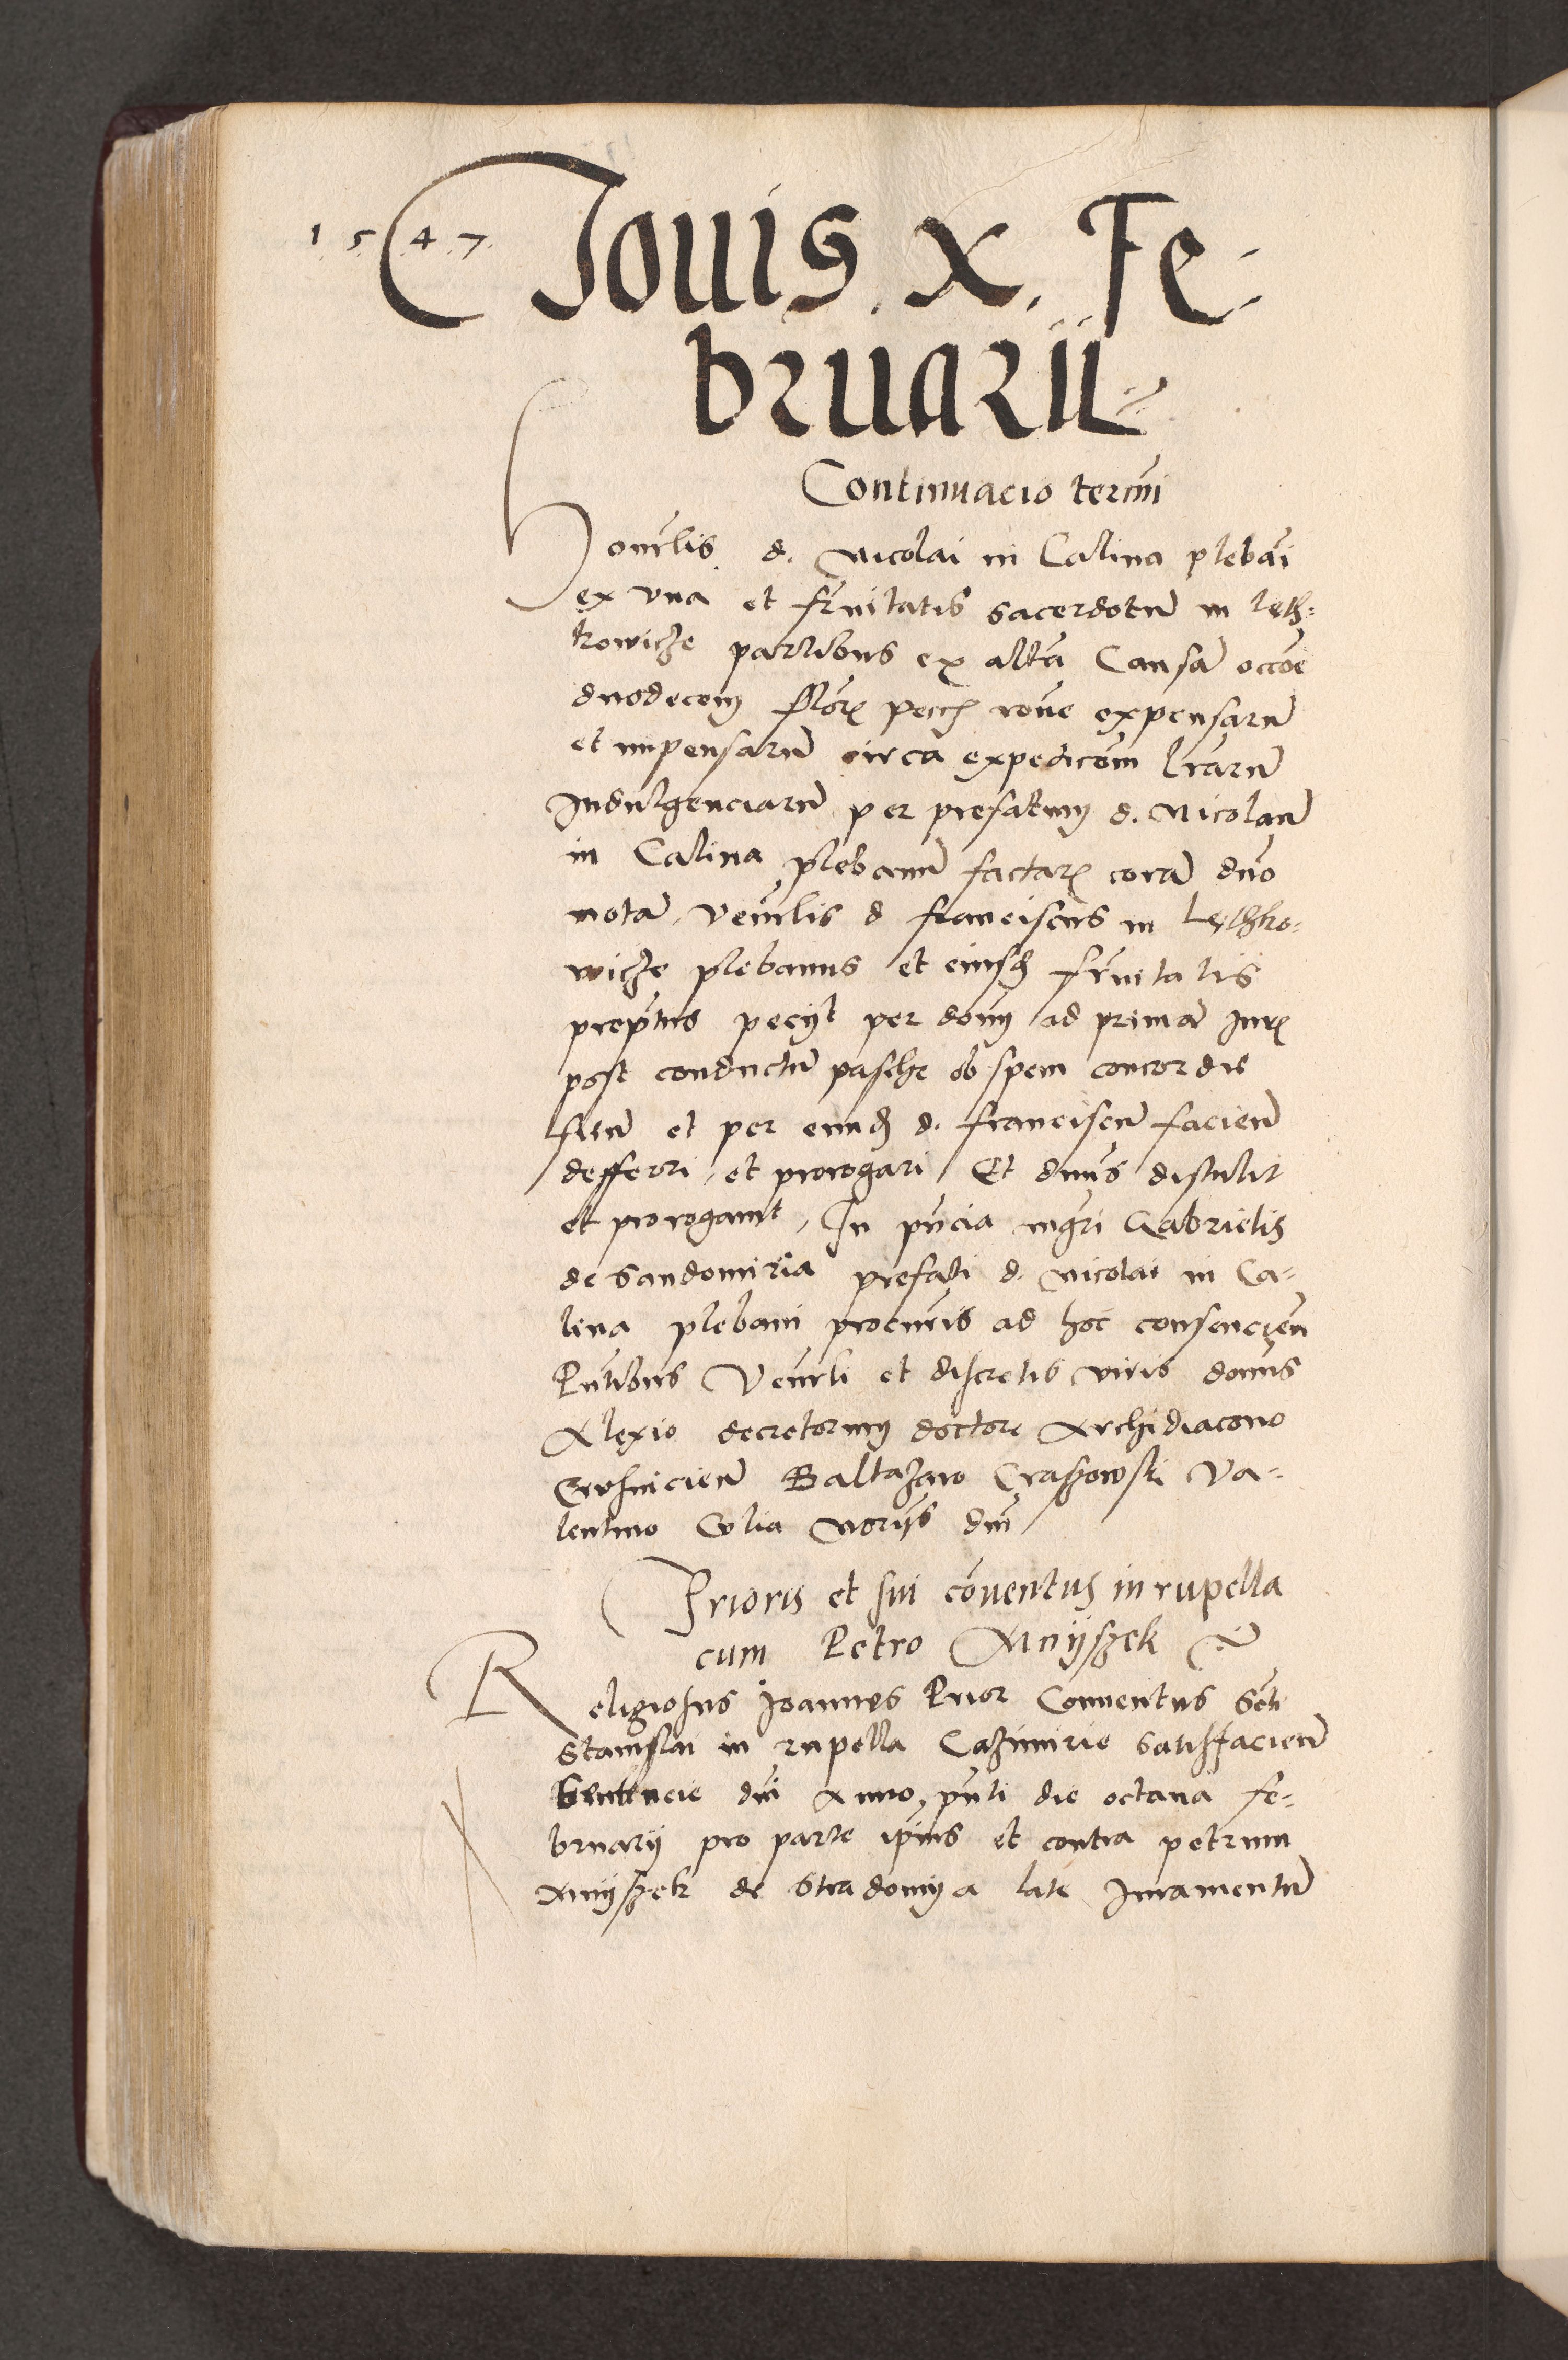 1547
Jouis x. Fe-
bruarii
Continuacio termi
Honorlis d. Nicolai in Calina plebani
ex vna et frnitatis sacerdotum in leth-
kowicze partibus ex altera Causam occone
duodecem florn pecch rone expensarum
et impensarum circa expedicom lrarum
Indulgenciarum per prefatum d. Nicolaum
in Calina plebanum factarum coram dno
motam, Venerlis d franciscus in Lethko-
wicze plebanus et eiusd frnitatis
preptus pecyt per dnum ad primam Jurn
post conductum pasche ob spem concordie
fien et per eund d. franciscum facien
defferri et prorogari Et dnus distulit
et prorogauit, In pncia mgri Gabrielis
de Sandomiria prefati d. Nicolai in Ca-
lina plebani procuris ad hoc consencien
Pntibus Venerli et discretis viris domis
Alexio decretorum doctore Archidiacono
Baltazaro Crassowski Va-
lentino Golia Notrys dm
Prioris et sui couentus in rupella
cum Petro Xmÿszek
Religiosus Joannes Prior Conuentus Scti
Stanislai in rupella Cazimirie Satisfacien
Sentencie dni Anno pnti die octaua fe-
bruarÿ pro parte ipius et contra petrum
Xmÿszek de Stradomÿa late Juramentum